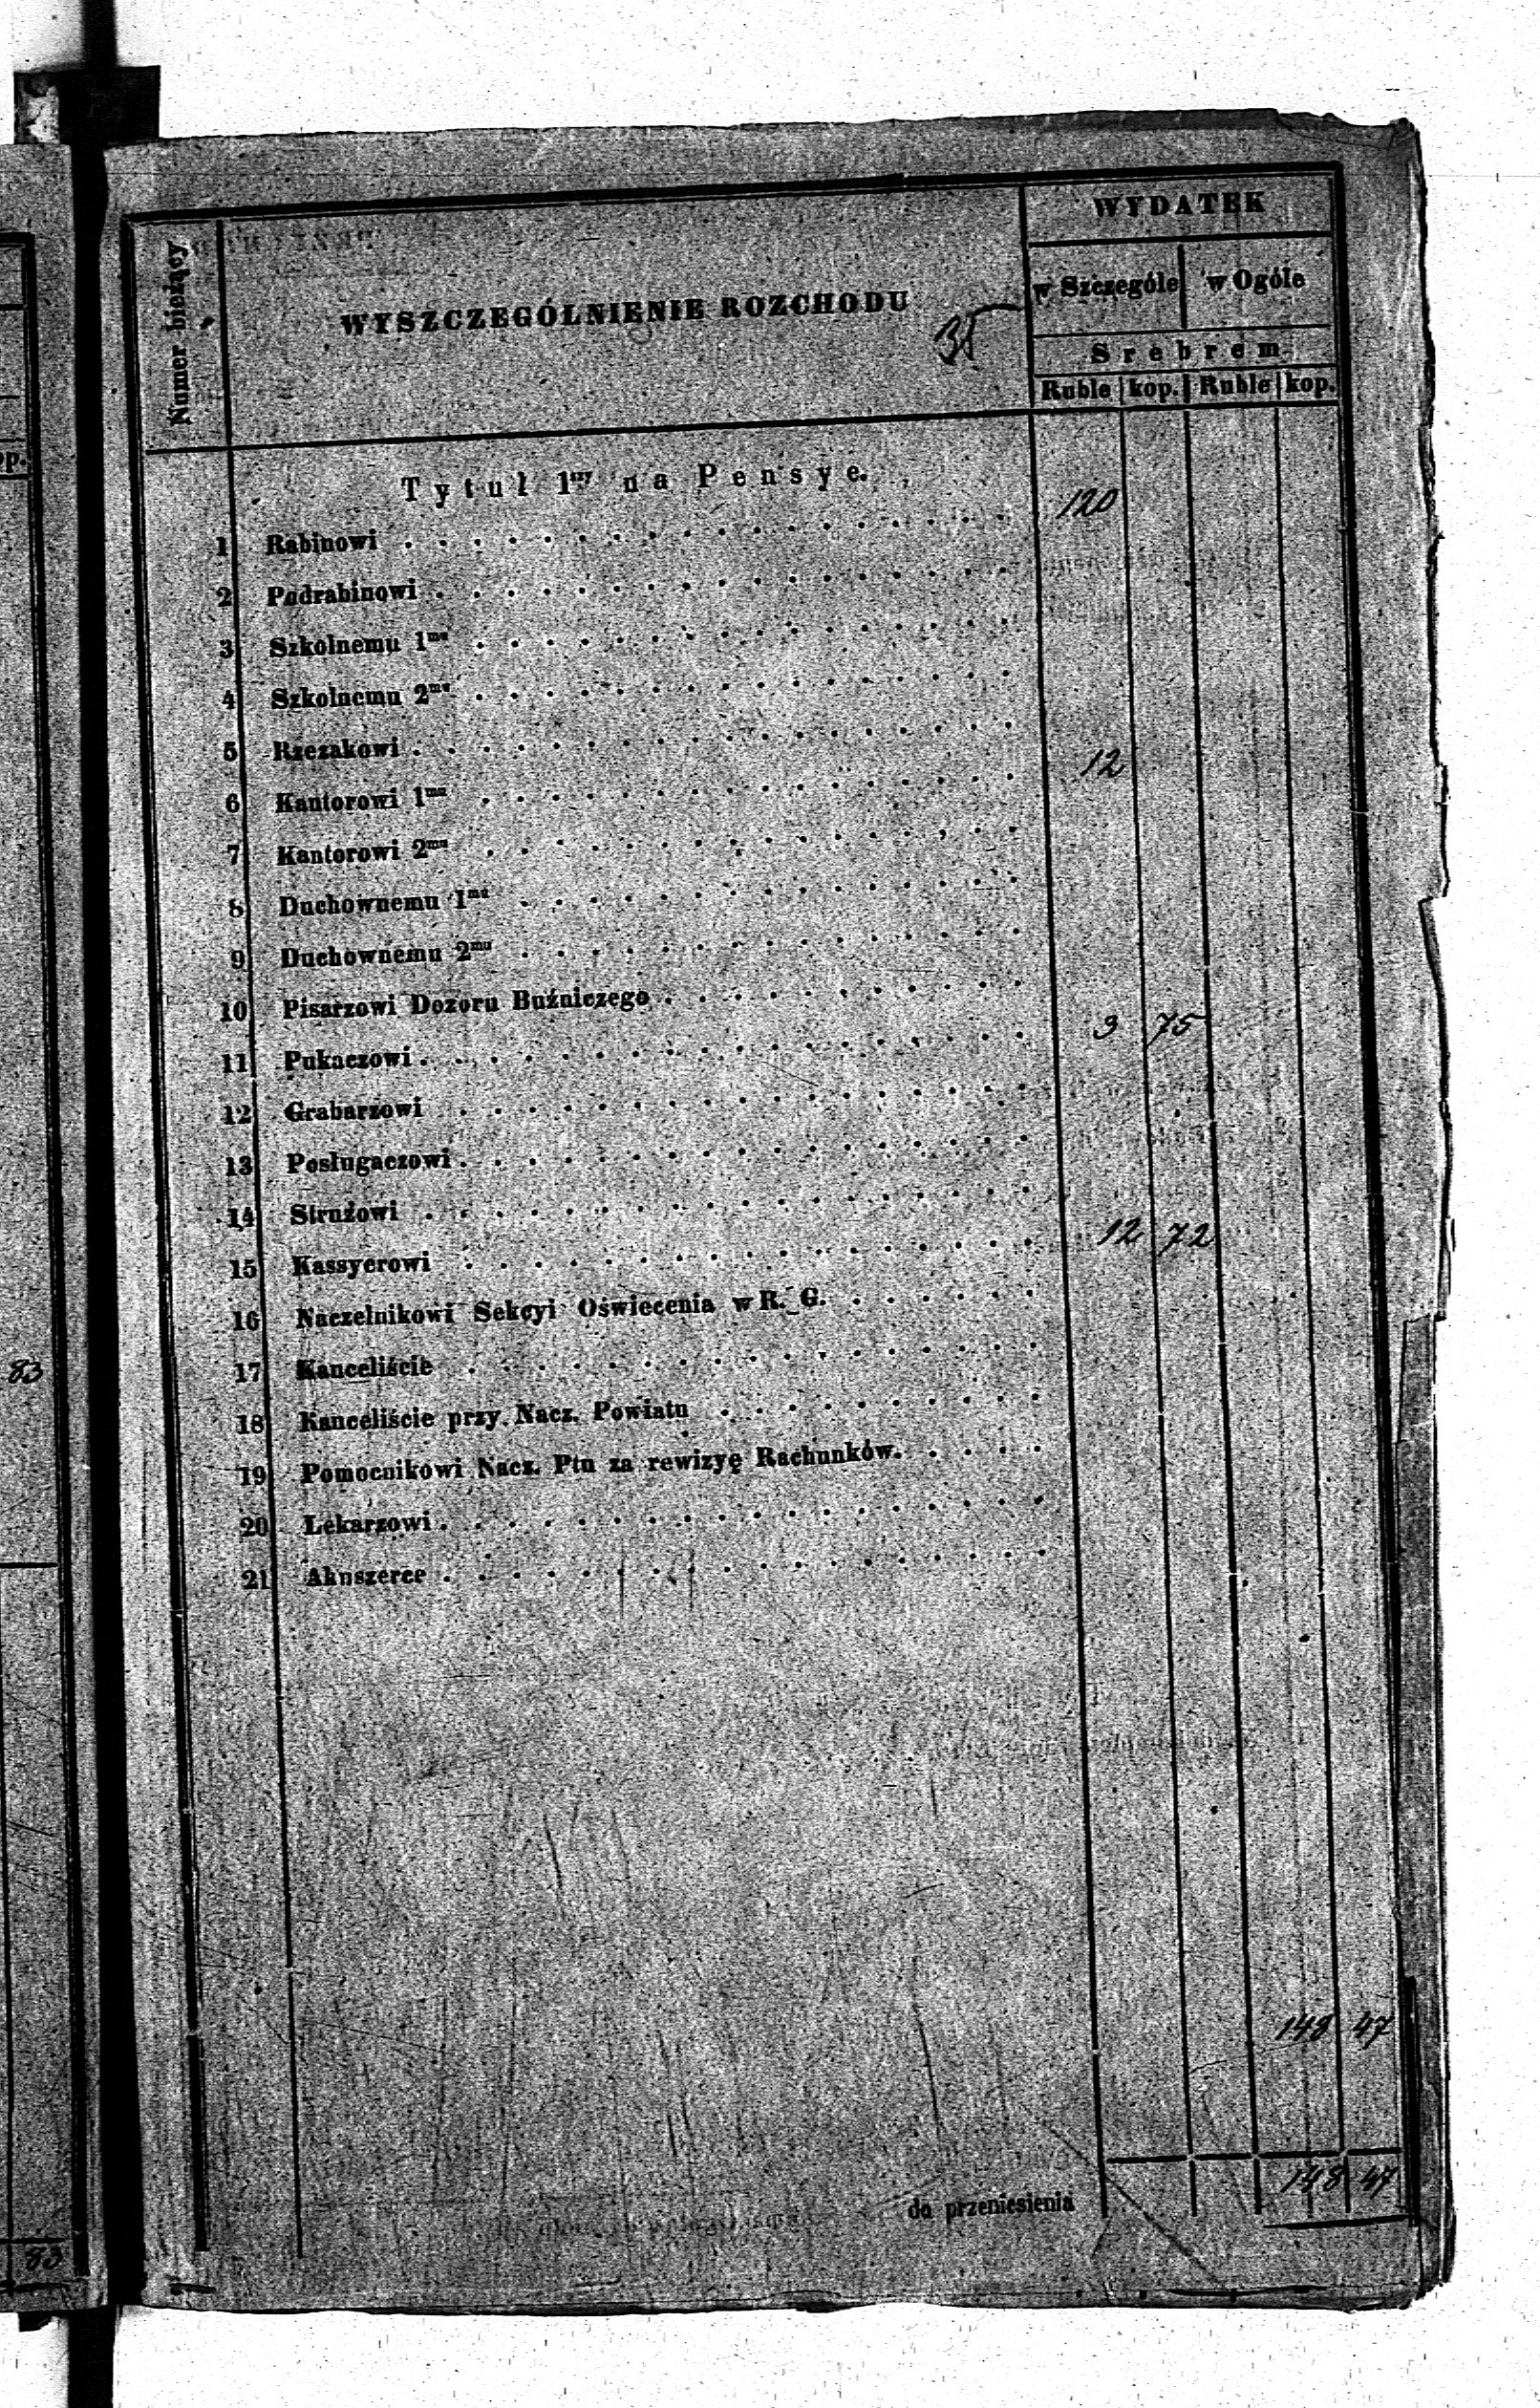 WYDATEK
Numer bieżący
WYSZCZEGÓLNIENIE ROZCHODU
w Szczególe w Ogóle
35
Srebrem
Ruble kop. Ruble kop.
op.
Tytuł 1ny na Pensye.
1 Rabinowi . . . 120
2 Podrabinowi . . .
3 Szkolnemu 1mu . . .
4 Szkolnemu 2mu . . .
5 Rzezakowi . . .
6 Kantorowi 1mu . . . 12
7 Kantorowi 2mu . . .
8 Duchownemu 1mu . . .
9 Duchownemu 2mu . . .
10 Pisarzowi Dozoru Buźniczego . . .
11 Pukaczowi . . . 3 75
12 Grabarzowi . . .
13 Posługaczowi . . .
14 Stružowi . . .
15 Kassyerowi . . . 12 72
16 Naczelnikowi Sekcyi Oświecenia w R. G. . . .
83
17 Kanceliście . . .
18 Kanceliście przy Nacz. Powiatu . . .
19 Pomocnikowi Nacz. Ptu za rewizyę Rachunków . . .
20 Lekarzowi . . .
21 Akuszerce . . .
148 47
do przeniesienia 148 47
83